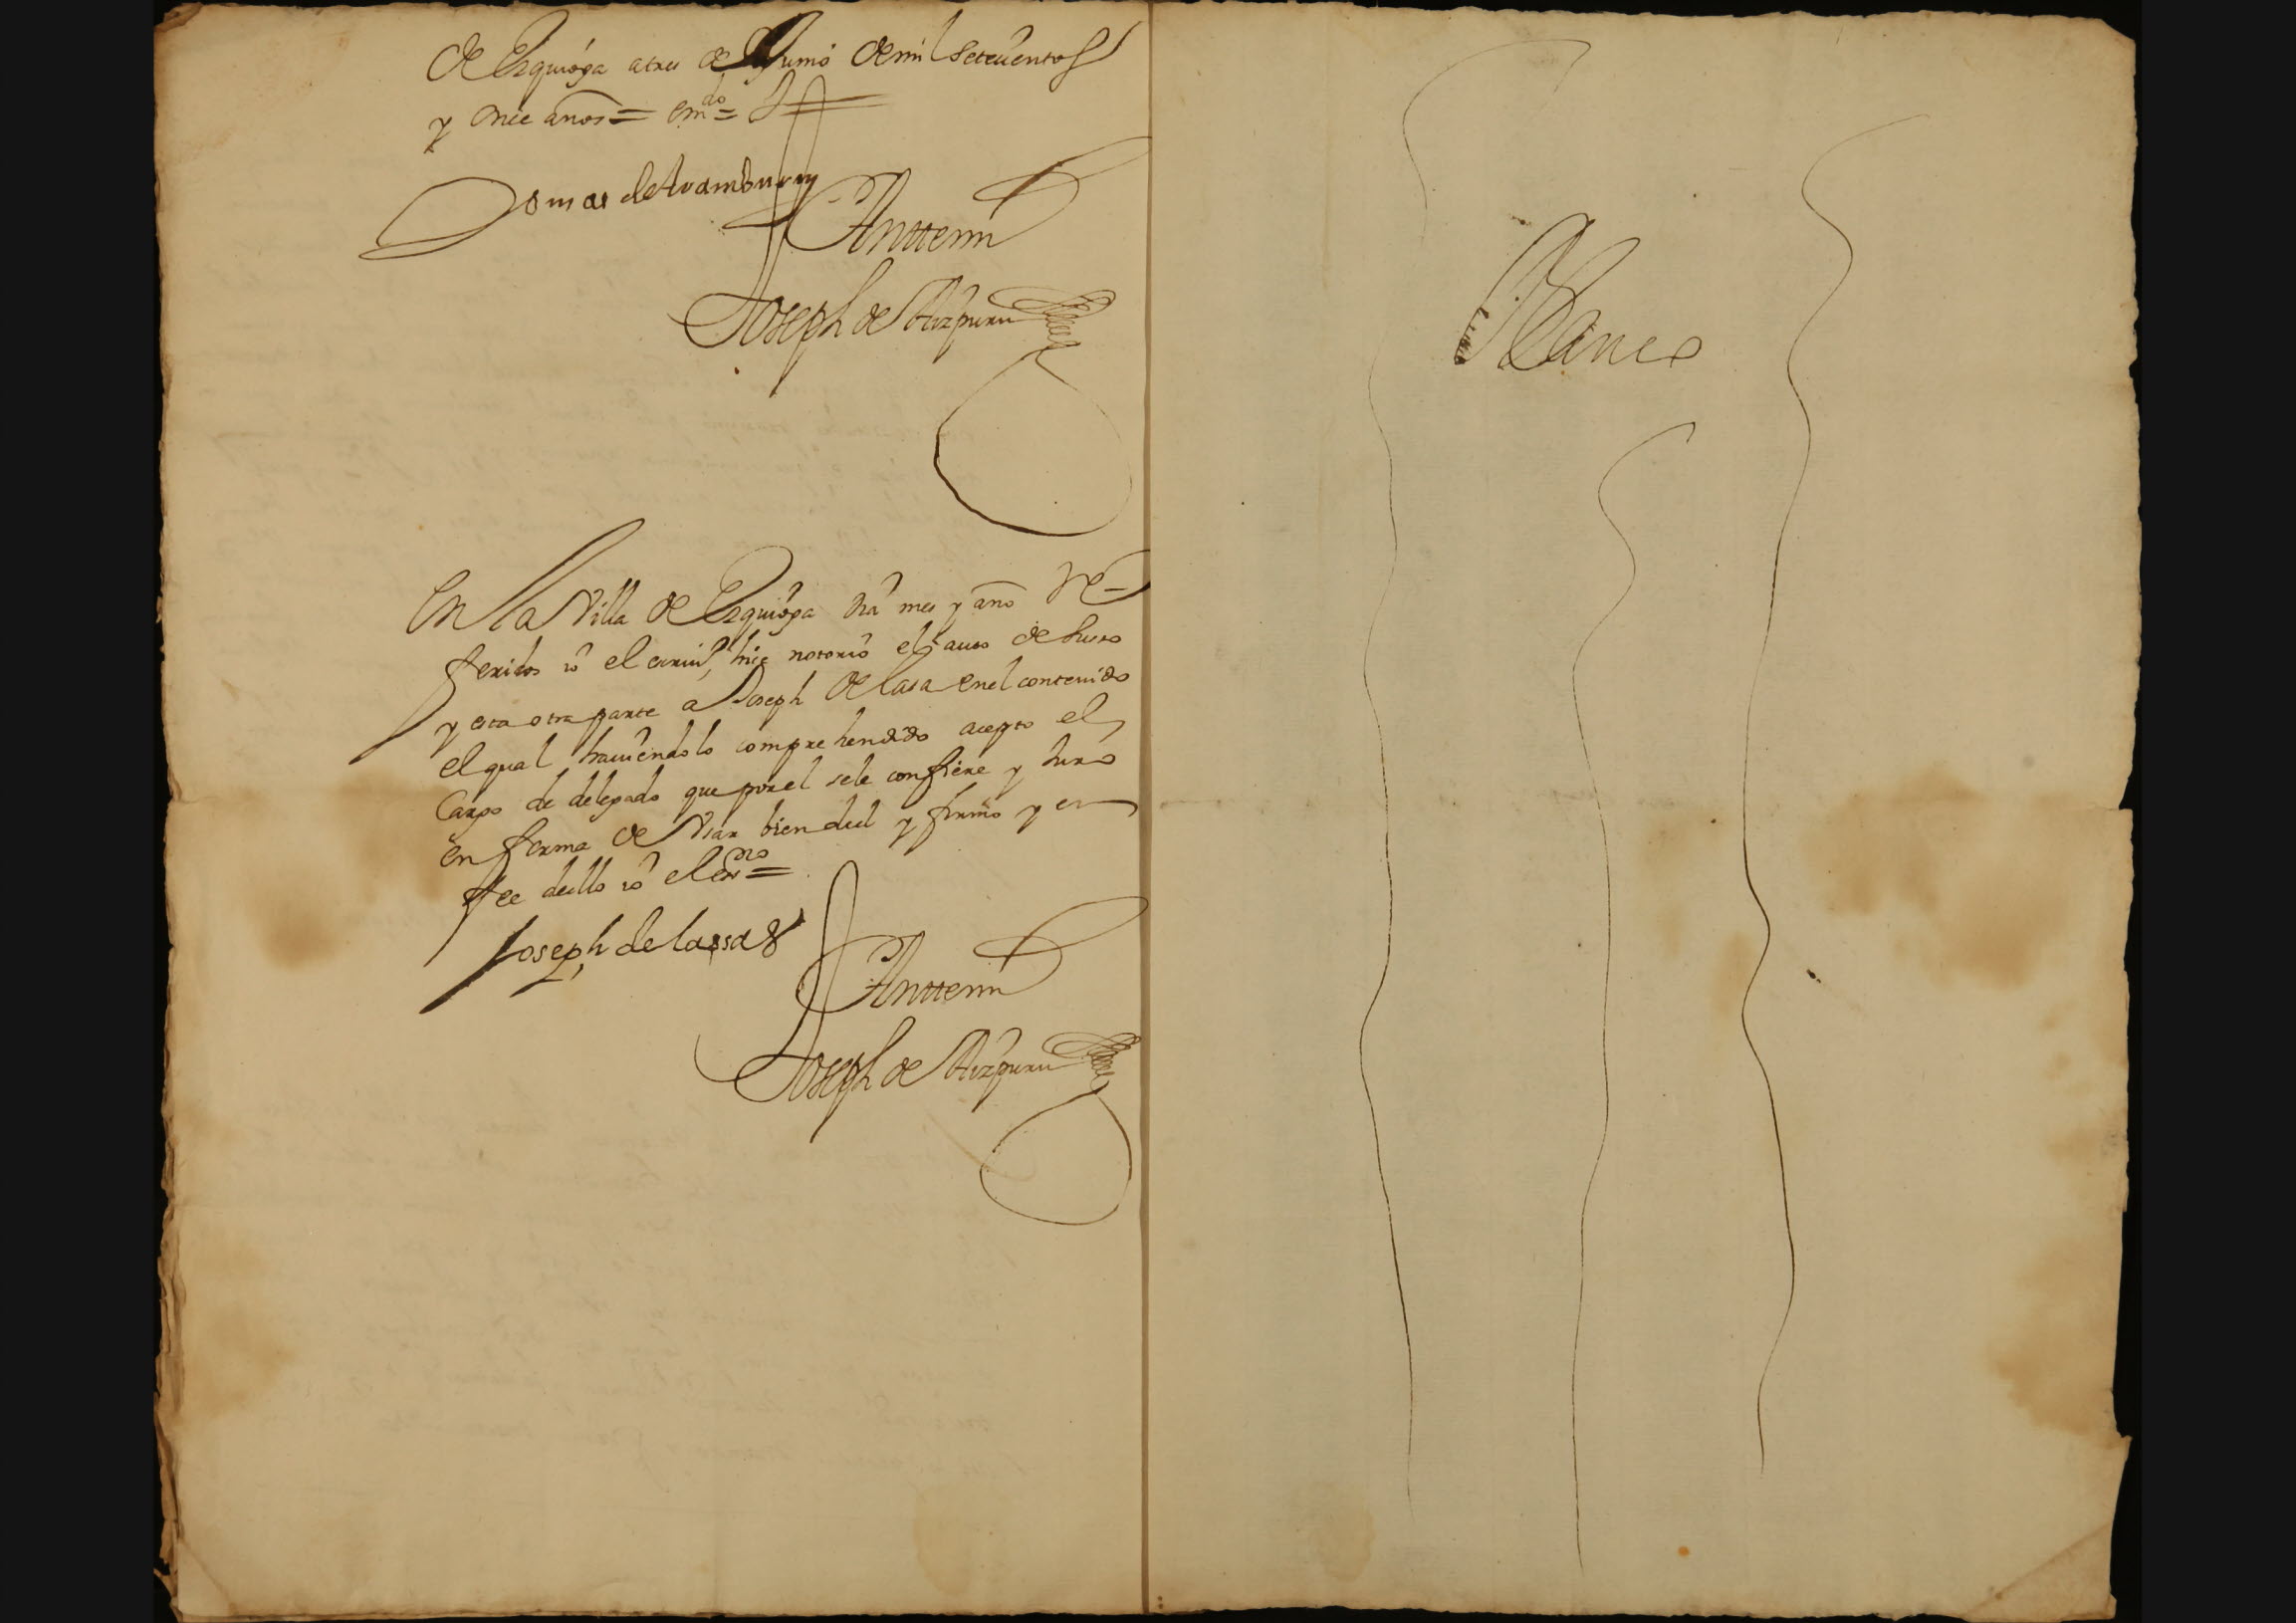 de Ezquioga a tres de Junio de mil setecientos
y once años = em.do = J
Domas de Aramburu
Antte mi
Joseph de Aizpuru
En la Villa de Ezquioga dia mes y año re-
feridos yo el escriu.o hice notorio el auto de suso
y esta otra parte a Joseph de lasa en el contenido
el qual hauiendolo comprehendido acepto el
Cargo de delegado que por el se le confiere y Juro
en forma de Vsar bien del y firmo y en
fee dello yo el es.no =
Joseph de lassa
Antte mi
Joseph de Aizpuru
Blanco